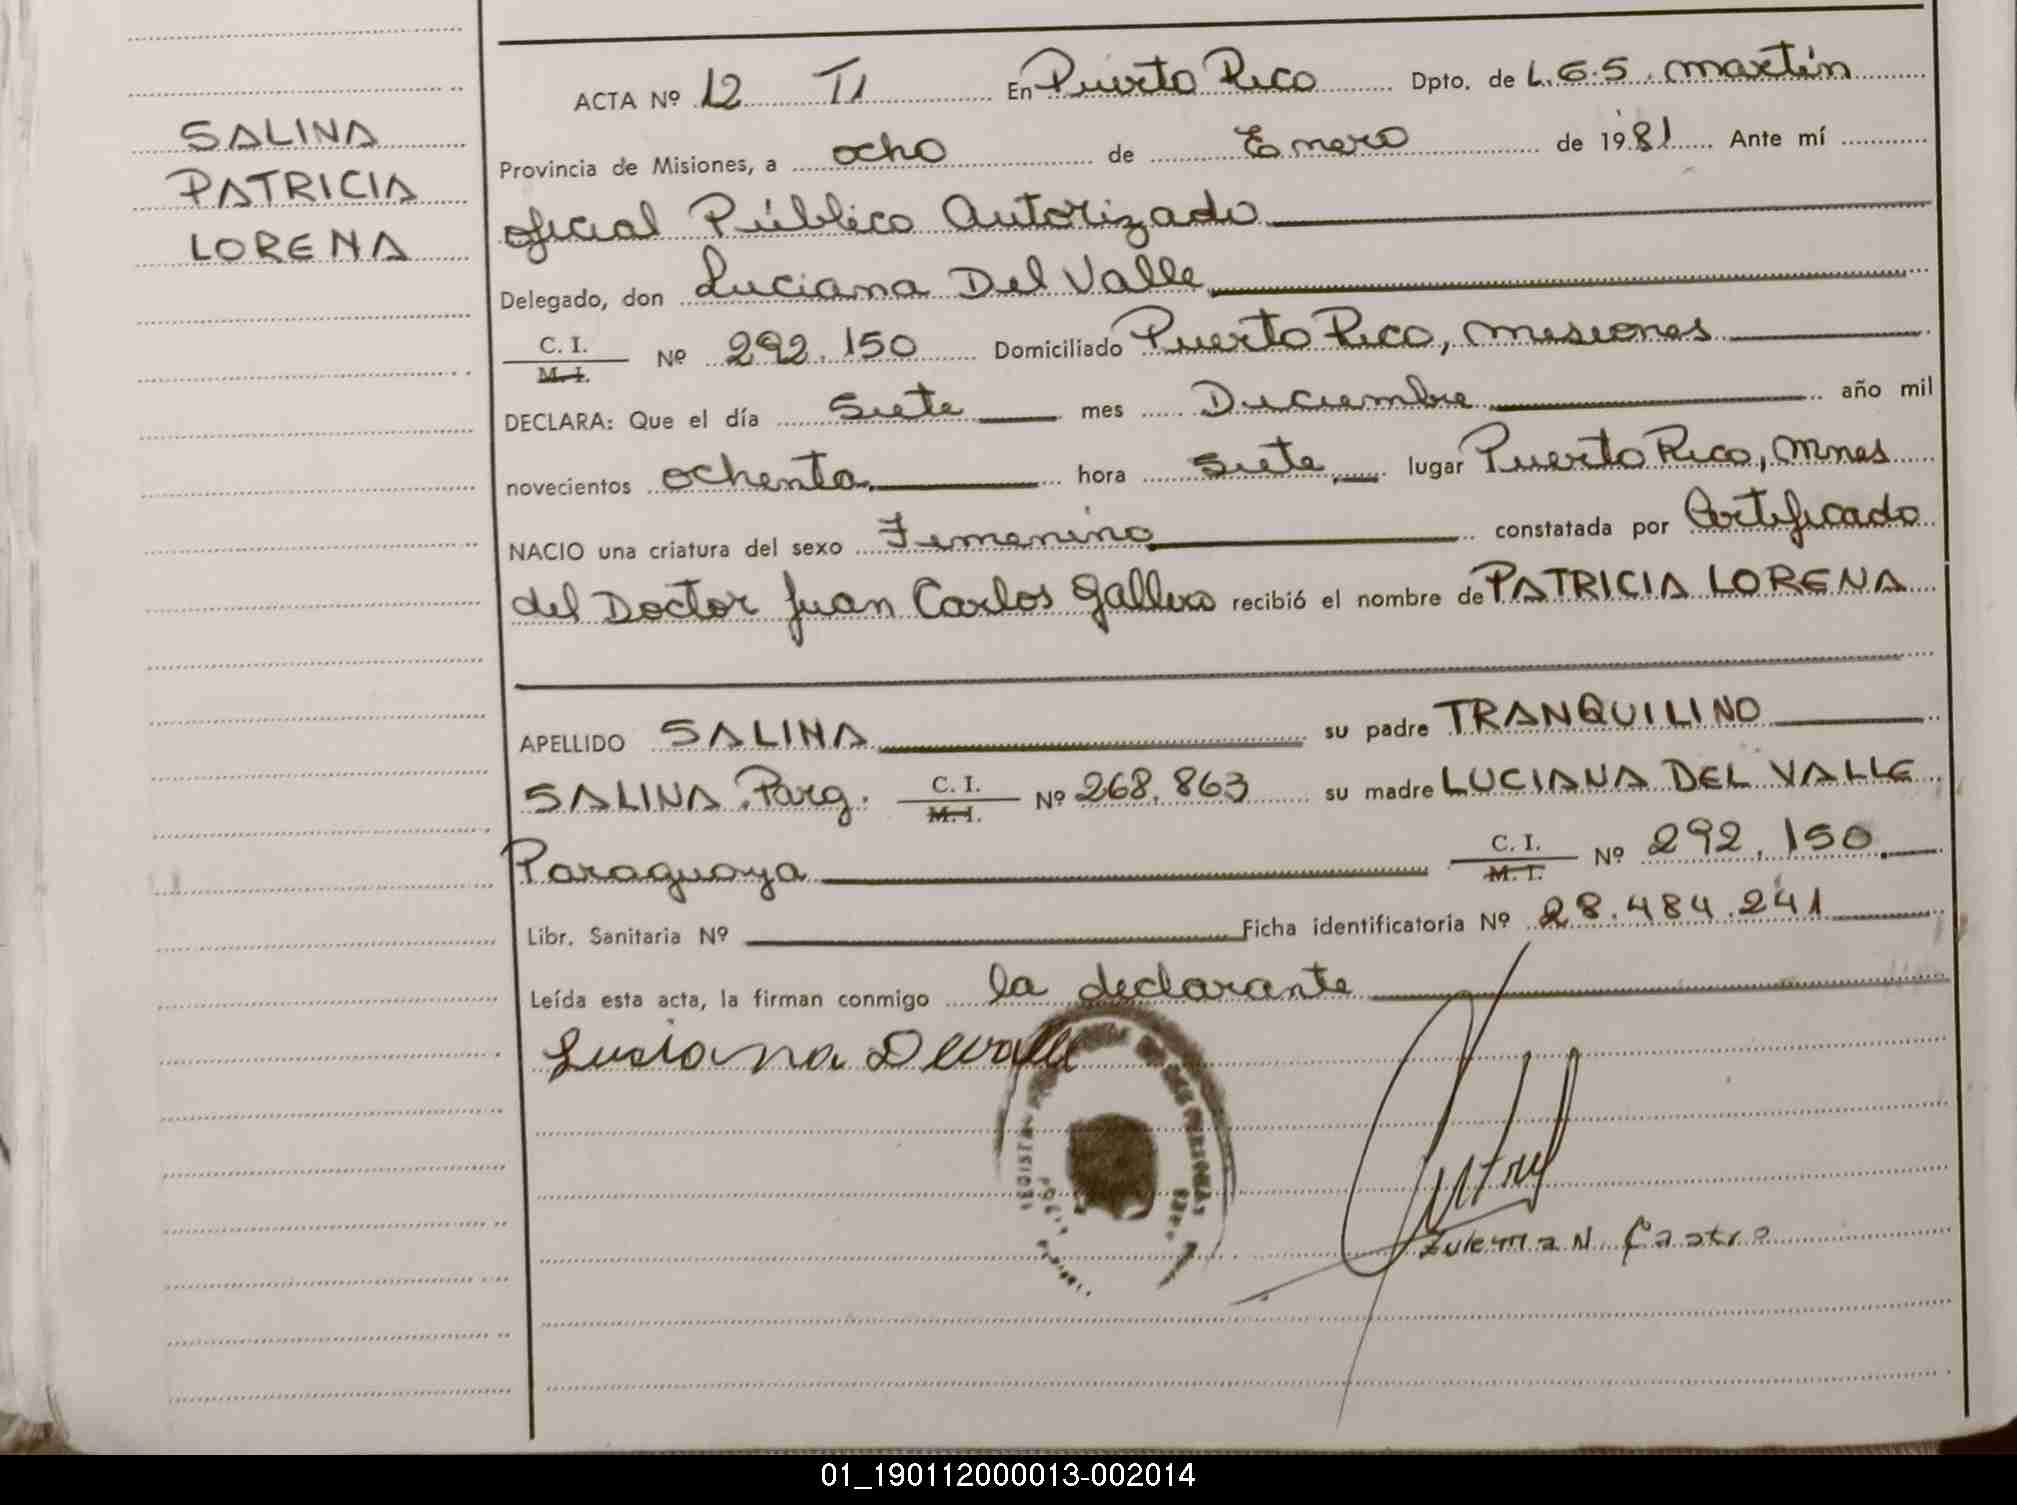 SALINA
PATRICIA
LORENA
ACTA Nº 12 TI En Puerto Rico Dpto. de L.G.S. Martín
Provincia de Misiones, a ocho de Enero de 1981 Ante mí
oficial Público Autorizado
Delegado, don Luciana Del Valle
C. I.
M. I. Nº 292.150 Domiciliado Puerto Rico, Misiones
DECLARA: Que el día Siete mes Diciembre año mil
novecientos ochenta hora siete lugar Puerto Rico, Mnes
NACIO una criatura del sexo Femenino constatada por Certificado
del Doctor Juan Carlos Gallero recibió el nombre de PATRICIA LORENA
APELLIDO SALINA su padre TRANQUILINO
SALINA Parg. C. I.
M. I. Nº 268.863 su madre LUCIANA DEL VALLE
Paraguaya C. I.
M. I. Nº 292.150
Libr. Sanitaria Nº Ficha identificatoria Nº 28.484.241
Leída esta acta, la firman conmigo la declarante
Lusiana Devalle
DE LAS PERSONAS
Zulema N. Castro
01_190112000013-002014